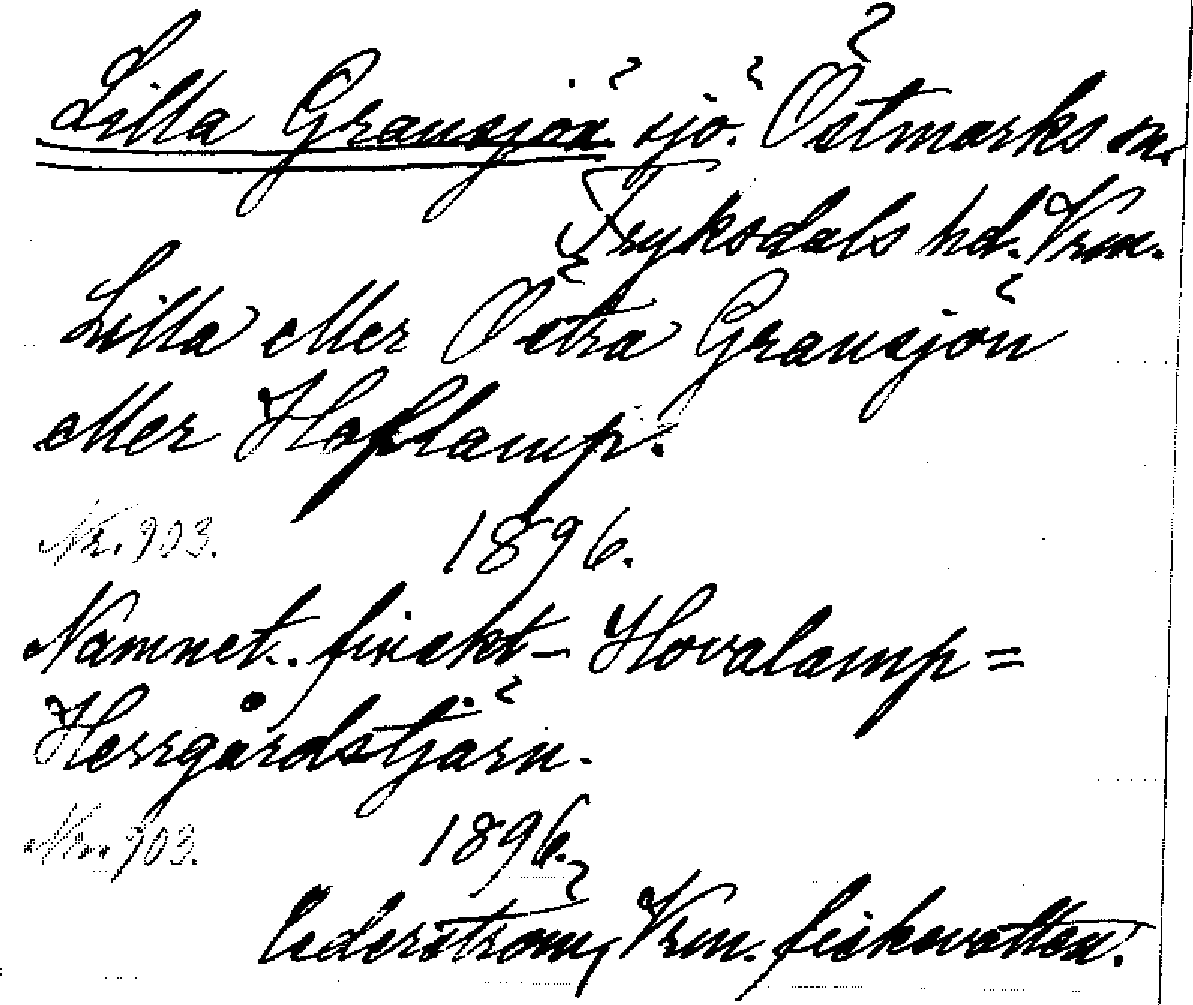 Lilla Gransjön sjö. Östmarks sn.
Fryksdals hd. Vrm.
Lilla eller Östra Gransjön
eller Hoflamp.
Nr. 903. 1896.
Namnet finskt - Hovalamp =
Herrgårdstjärn.
Nr. 903. 1896.
Cederström, Vrm. fiskevatten.